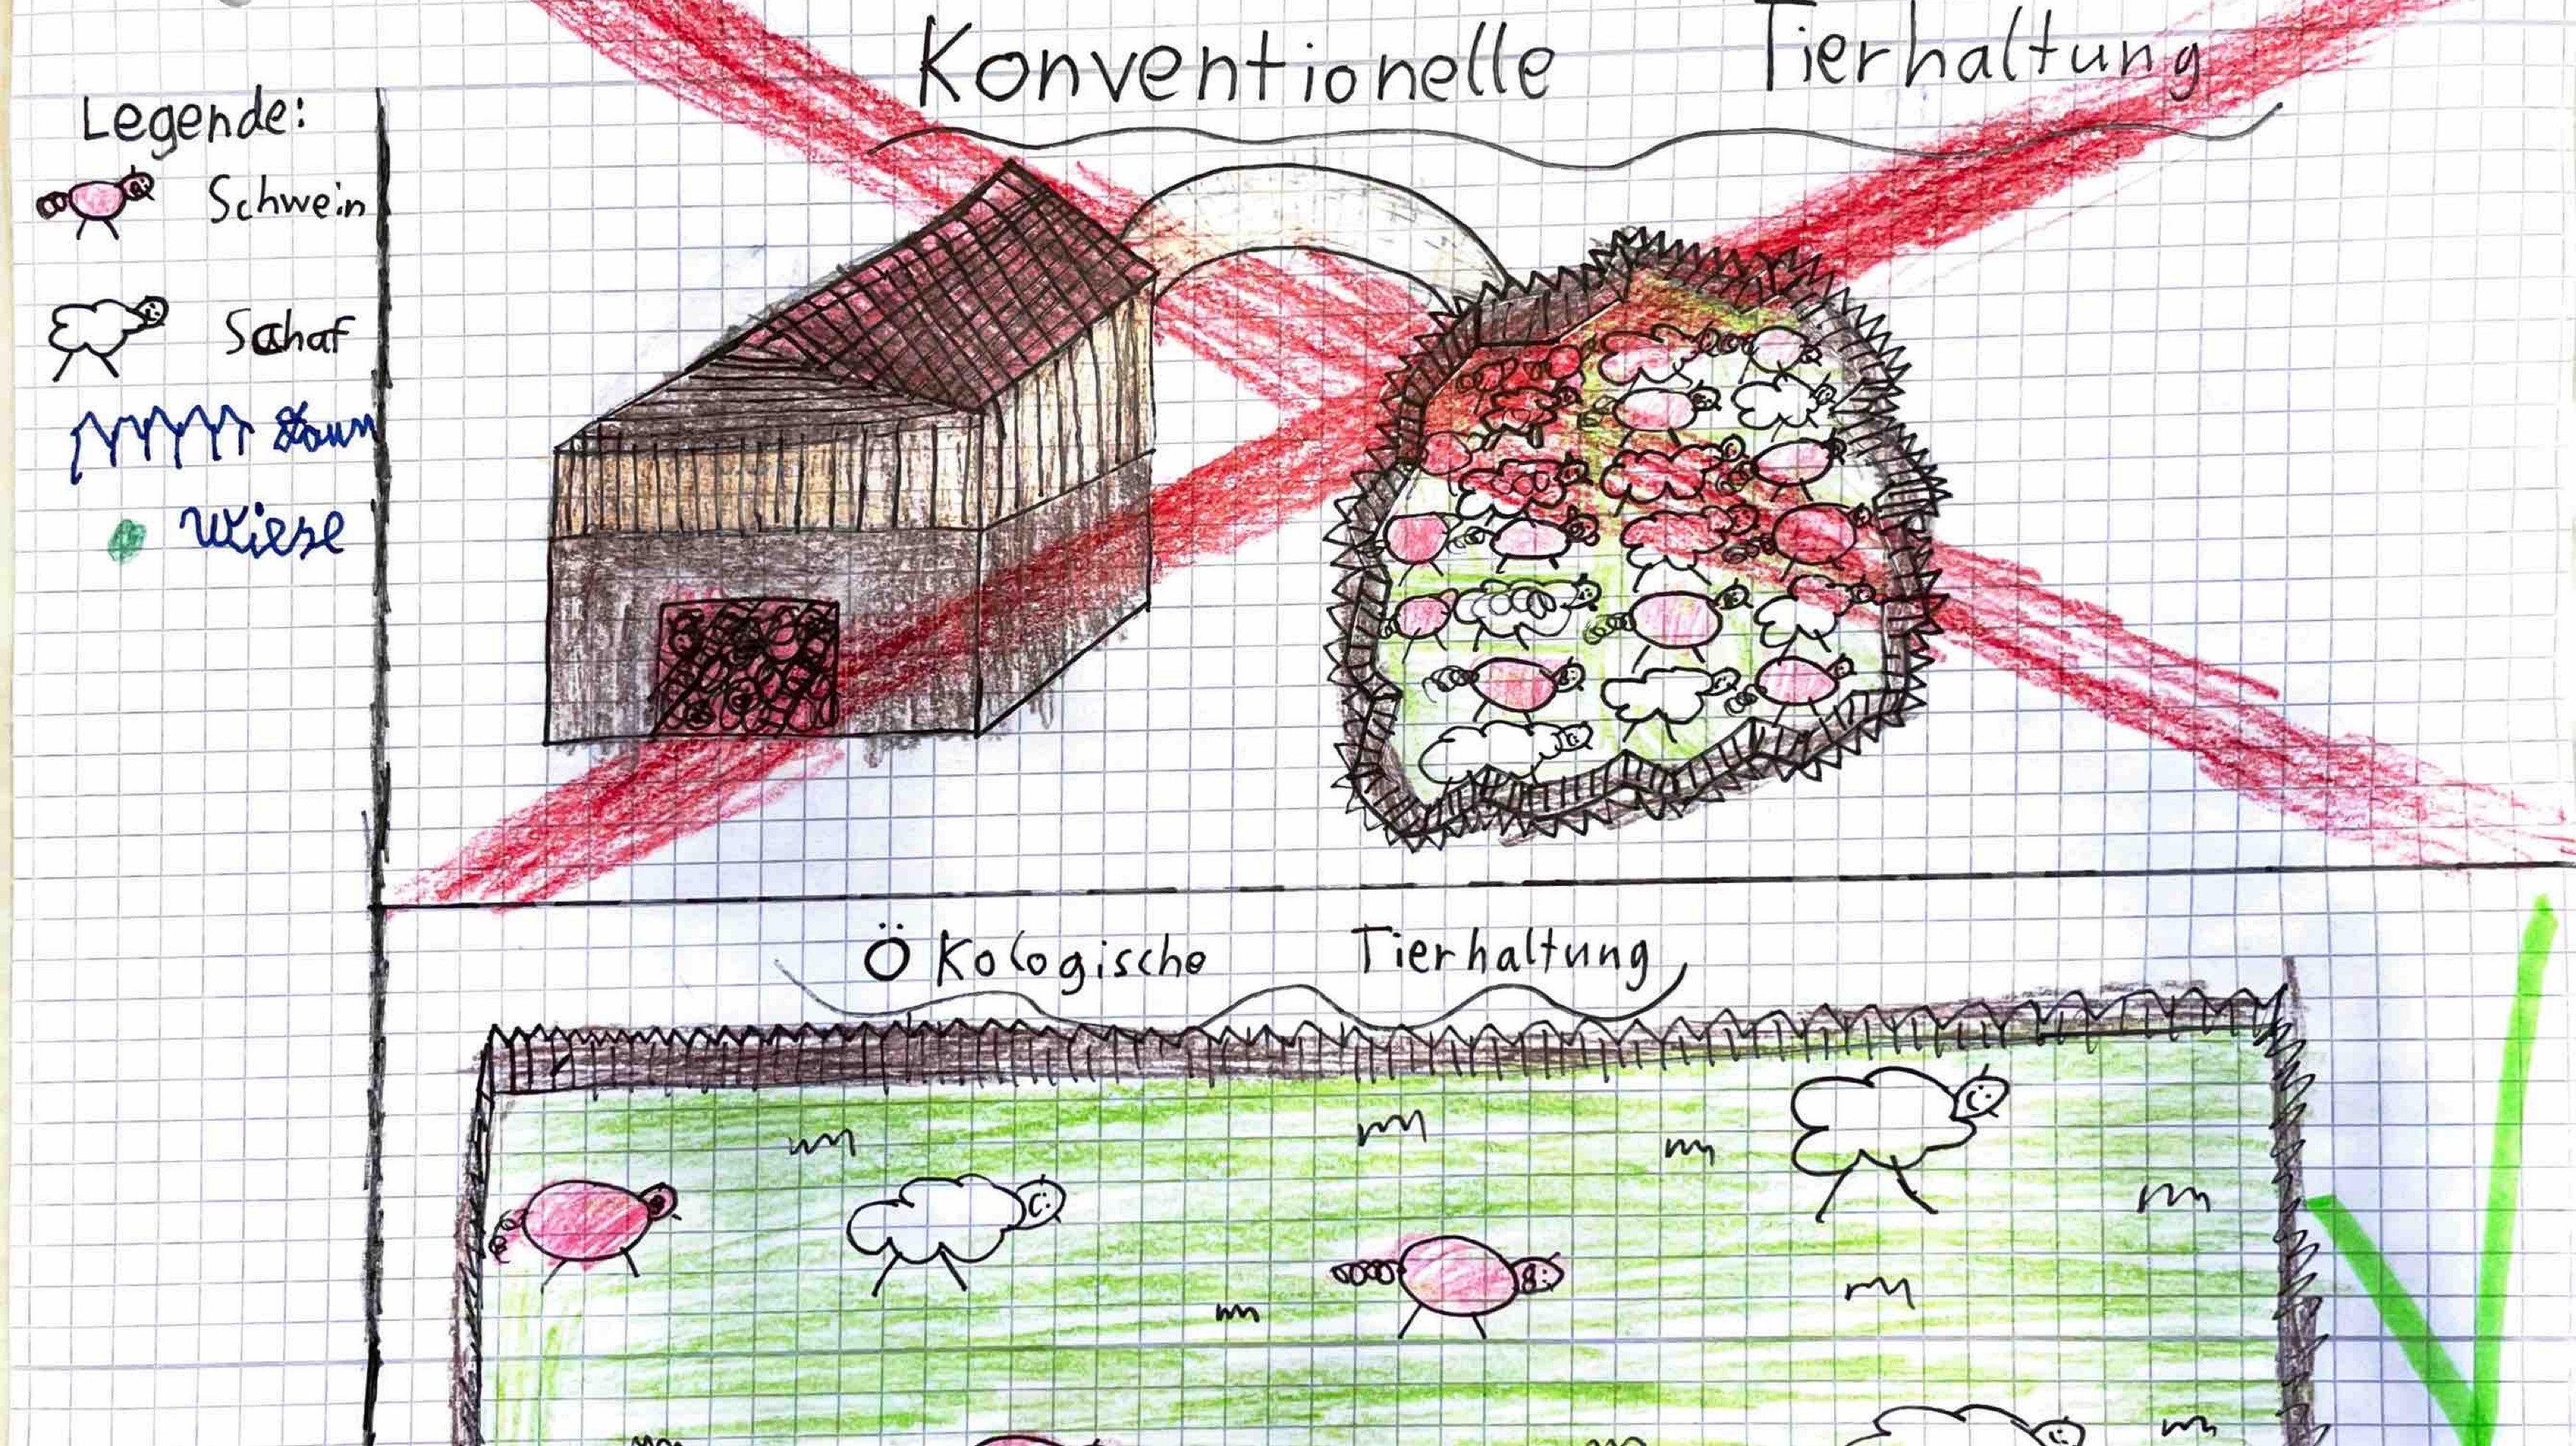 Konventionelle Tierhaltung
Legende:
Schwein
Schaf
Zaun
Wiese
Ökologische Tierhaltung